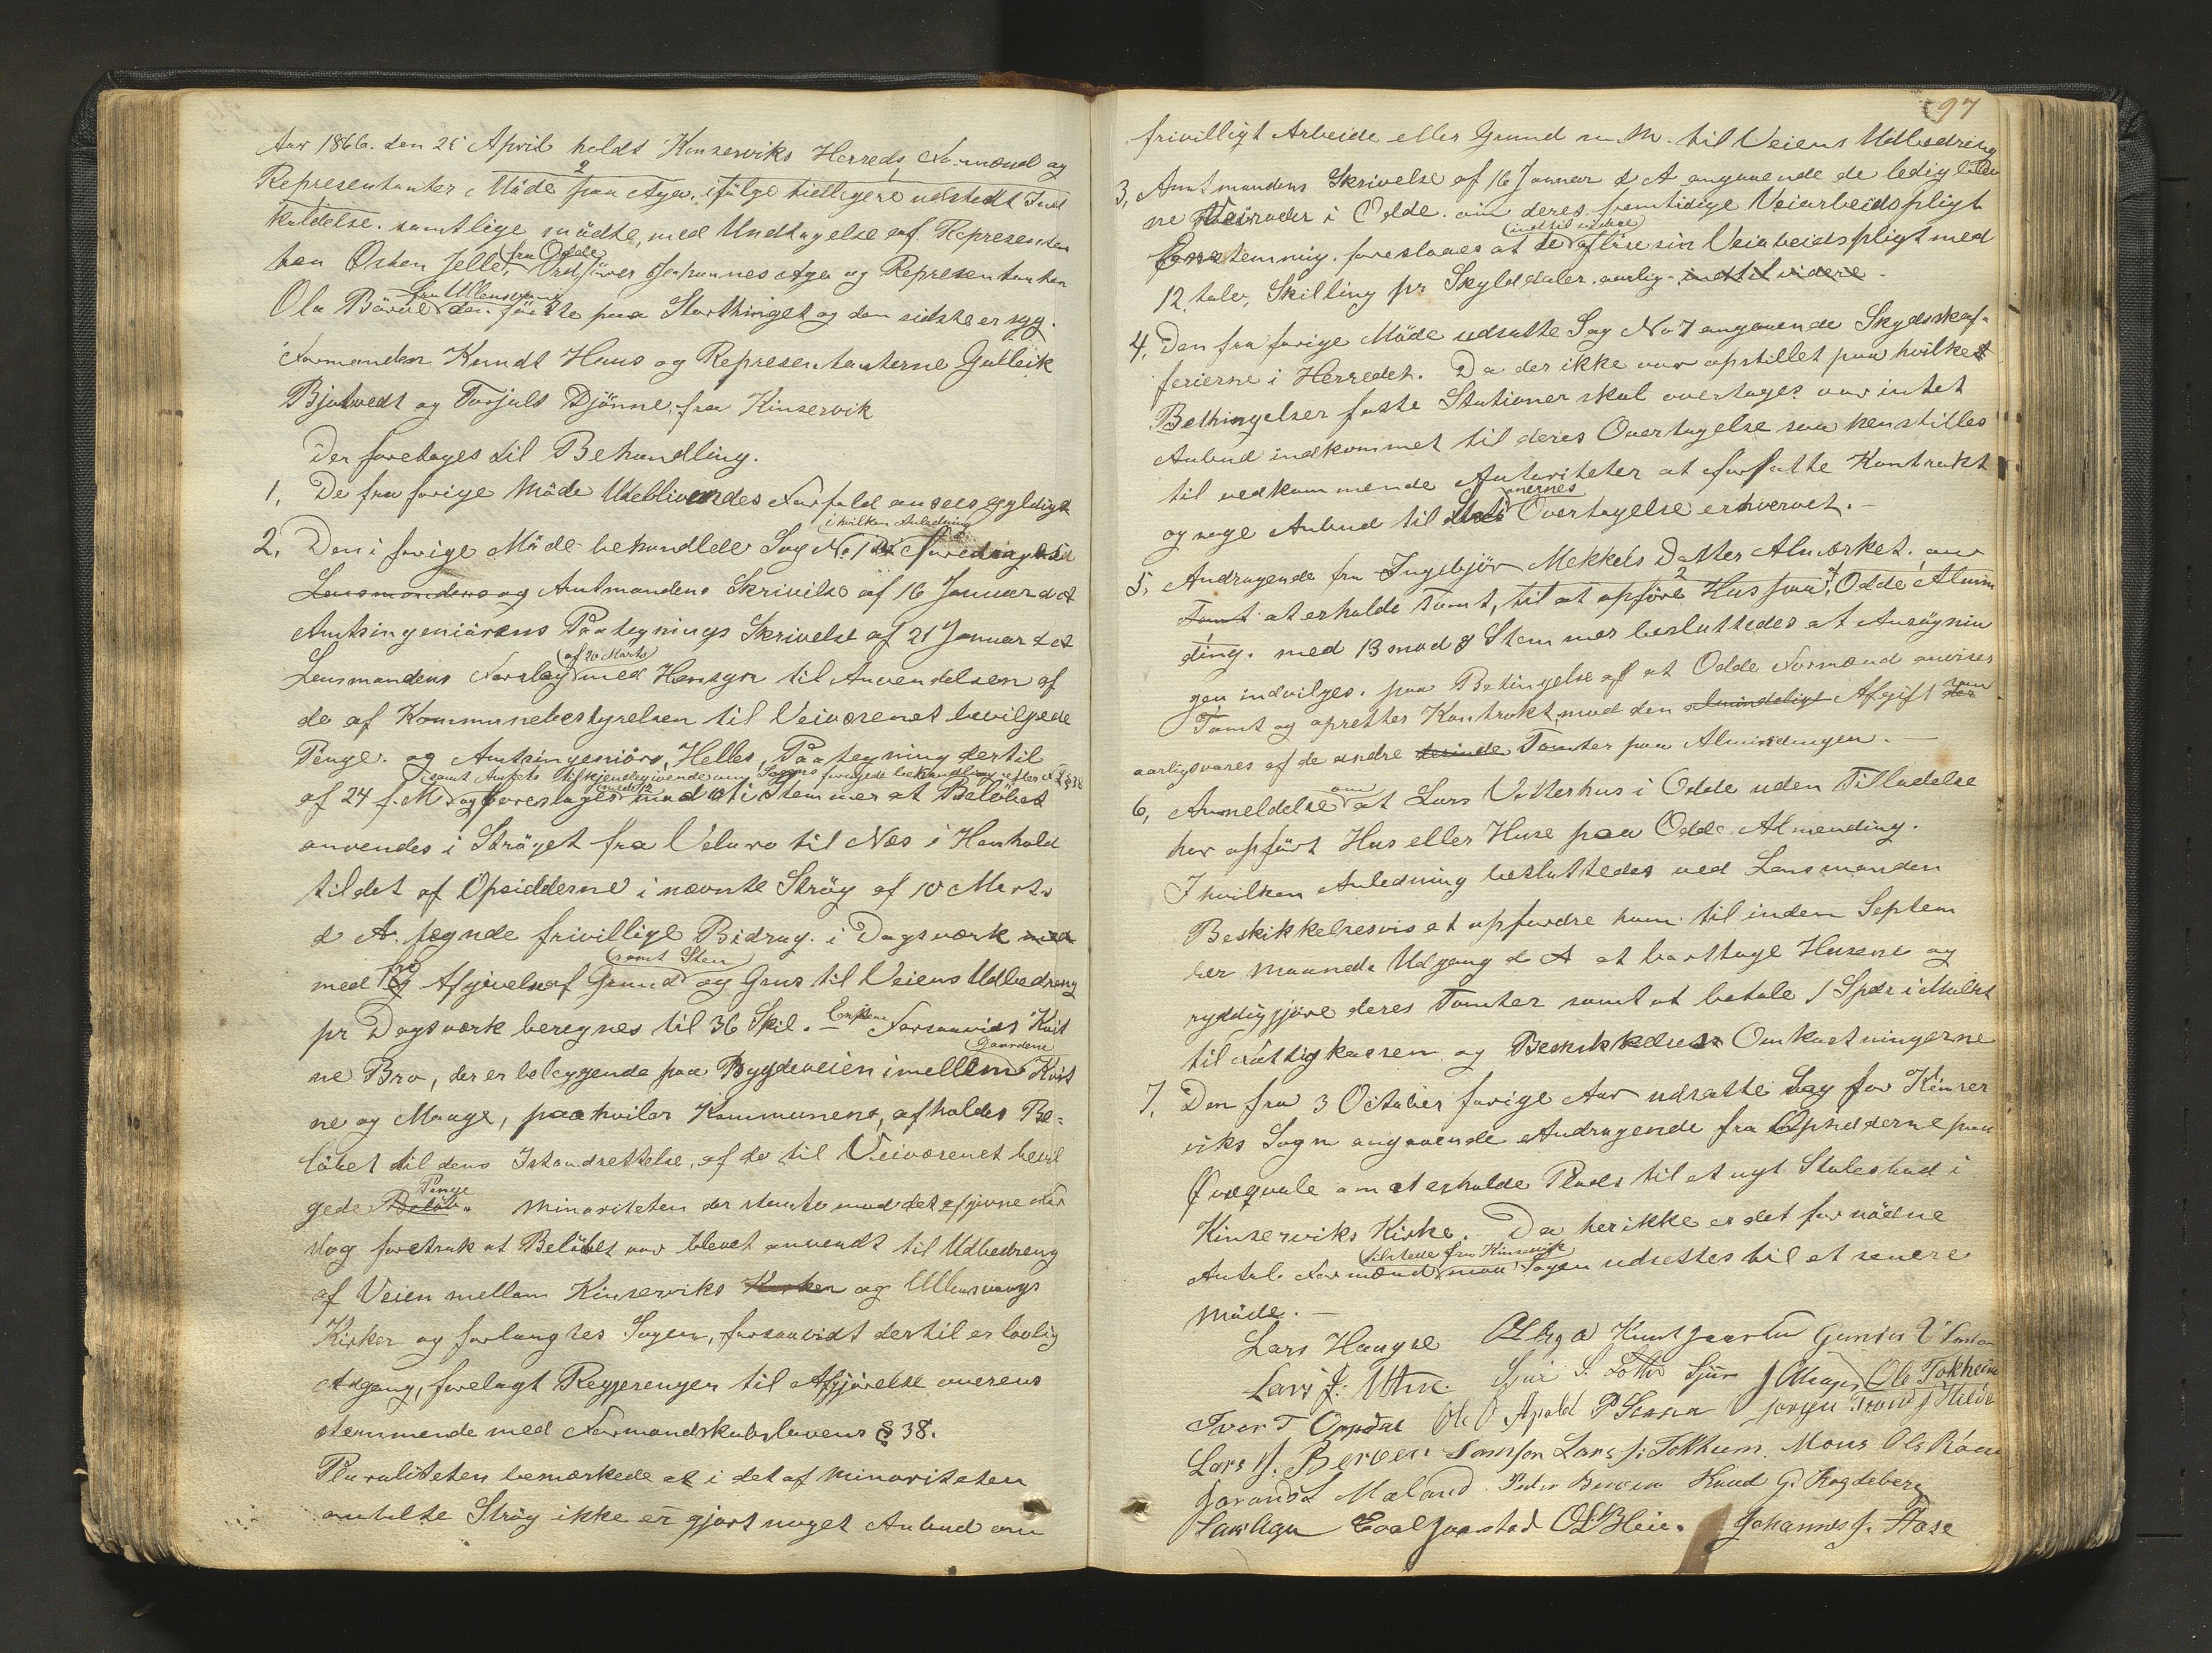 Aar 1866. den 25 April holdt Kinserviks Herreds Formænd og
Representanter Möde paa Aga. ifölge tidligere udstedt Ind
kaldelse. samtlige mödte, med Undtagelse af Representan
ten Osten Jelle, fra Odde Ordförer Johannes Aga og Representanten
Ola Börve fra Ullensvang den förste paa Storthinget og den sidste er syg.
Formanden Knudt Huus og Representanterne Gulleik
Bjotvedt og Torjuls Djönne, fra Kinservik
Der foretages til Behandling.
1, De fra forige Möde Udeblivendes Forfald ansees gyldigt
2. Den i forige Möde behandlede Sag No 1 i hvilken Anledning foredrages
Lensmandens og Amtmandens Skrivelse af 16 Januar d A
Amtsingeniörens Paategnings Skrivelse af 21 Januar d A
Lensmandens Forslag af 20 Marts med Hensyn til Anvendelsen af
de af Kommunebestyrelsen til Veivæsenet bevilgede
Penge. og Amtsingeniörs Helles, Paategning dertil
af 24 f. M og foreslages mod ti Stemmer at Belöbet
anvendes i Ströget fra Velure til Næs i Henhold
til det af Opsidderne i nævnte Strög af 10 Marts
d A. tegnde frivillige Bidrag. i Dagsværk med
med Afgivelse af Grund samt Sten og Grus til Veiens Udbedreng
pr Dagsværk beregnes til 36 Skil. Forsaavidt Kvit
ne Bro, der er beleggende paa Bygdeveien imellem Gaardene Kvit
ne og Mauge, paahviler Kommunene, afholdes Be-
löbet til dens Istandsettelse, af de til Veivæsenet bevil
gede Belöb Penge. Minoriteten der stemte mod det afgivne For
slag foretrak at Belöbet var blevet anvendt til Udbedreng
af Veien mellem Kinserviks Kirken og Ullensvangs
Kirker og forlangtes Sagen, forsaavidt dertil er lovlig
Adgang, forelagt Regjerengen til Afgjörelse overens
stemmende med Formandskabslovens § 38.
Pluraliteten bemærkede at i det af Minoriteten
omtalte Strög ikke er gjort noget Anbud om
97
frivilligt Arbeide eller Grund m. M. til Veiens Udbedring
3, Amtmandens Skrivelse af 16 Januar d A angaaende de ledigblev
ne Veiroder i Odde. om deres fremtidige Veiarbeidspligt
Enstemmig. foreslaaes at de indtil videre aflöse sin Veiarbeidspligt med
12 tolv, Skilling pr Skylddaler. aarlig. indtil videre.
4, Den fra forige Möde udsatte Sag No 7 angaaende Skydsskaf-
ferierne i Herredet. Da der ikke var opstillet paa hvilket
Bethingelser faste Stationer skal overtages var intet
Anbud indkommet til deres Overtagelse saa henstilles
til vedkommende Autoriteter at forfatte Kontrakt
og söge Anbud til Stationernes Overtagelse erhvervet.-
5, Andragende fra Ingebjör Mekkels Datter Almerket. om
Tomt at erholde Tomt, til at opföre Hus paa Odde Almin
ding. med 13 mod 8 Stemmer besluttedes at Ansögnin
gen indvilges. paa Betingelse af at Odde Formænd anviser
Tomt og opretter Kontrakt mod den almindelige Afgift som
aarligsvares af de andre Tomter paa Almindingen.-
6, Anmeldelse om at Lars Vetterhus i Odde uden Tilladelse
har opfört Hus eller Huse paa Odde Almending.
I hvilken Anledning besluttedes ved Lensmanden
Beskikkelsesvis at opfordre ham til inden Septem
ber Maaneds Udgang d A at borttage Husene og
ryddiggjöre deres Tomter samt at betale 1 Spdr i Mulkt
til Fattigkassen og Beskikkelses Omkostningerne
7, Den fra 3 October forige Aar udsatte Sag for Kinser
viks Sogn angaaende Andragende fra Opsidderne paa
om at erholde Plads til et nyt Stolestad i
Kinserviks Kirke. Da her ikke er det fornödne
Antal Formænd tilstede fra Kinservik maa Sagen udsettes til et senere
Möde.-
Lars Haugse
Lars J. Utne. Ole Tokheim
Ivar T Oppdal Ole O Apold
Lars J. Berven Lars J. Tokheim. Mons
Maland Peder Berven Knud G. Hogdeberg
Johannes J. Aase